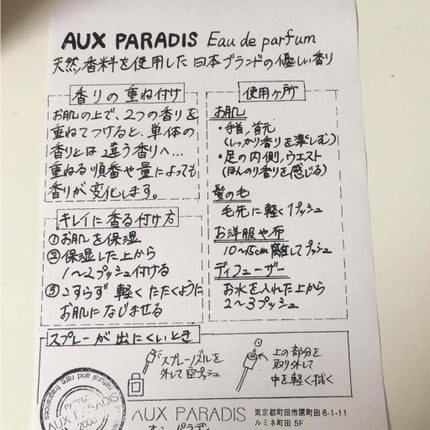 AUX PARADIS Eau de parfum
天然香料を使用した日本ブランドの優しい香り
香りの重ね付け
お肌の上で、2つの香りを
重ねてつけると、単体の
香りとは違う香りへ…
重ねる順番や量によっても
香りが変化します。
キレイに香る付け方
①お肌を保湿
②保湿した上から
1〜2プッシュ付ける
③こすらず軽くたたくように
お肌になじませる
使用ヶ所
お肌
・手首、首元
(しっかり香りを楽しむ)
・足の内側、ウエスト
(ほんのり香りを感じる)
髪の毛
毛先に軽く1プッシュ
お洋服や布
10〜15cm離してプッシュ
ディフューザー
お水を入れた上から
2〜3プッシュ
スプレーが出にくいとき
スプレーノズルを
外して空プッシュ
上の部分を
取り外して
中を軽く拭く
AUX PARADIS
東京都町田市原町田6-1-11
ルミネ町田5F